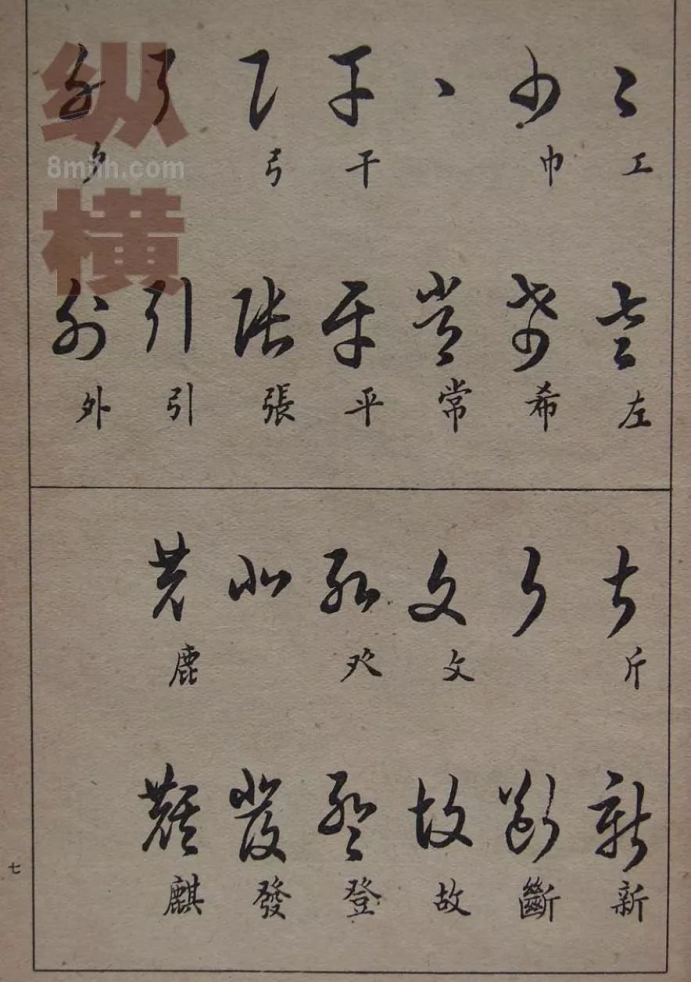 工 巾 干 弓 夕
左 希 常 平 張 引 外
斤 文 癶 鹿
新 斷 故 登 發 麒
七
纵横
8mhh.com